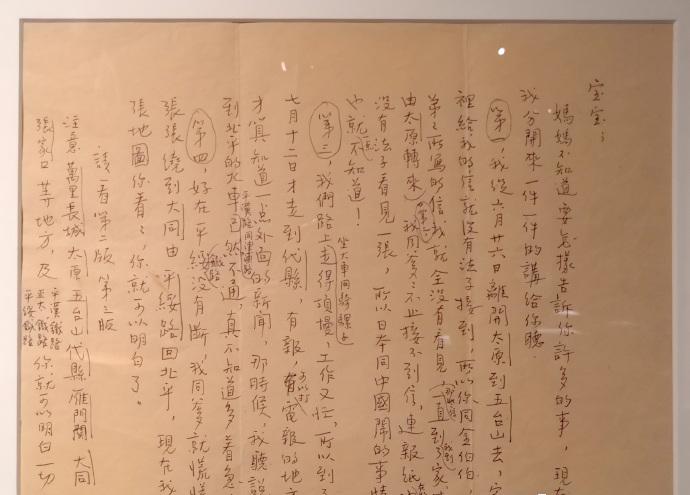 宝宝：
媽媽不知道要怎樣告訴你許多的事，現在
我分開來一件一件的講給你聽
第一，我從六月廿六日離開太原到五台山去，家
裡給我的信就沒有法子接到，所以你同金伯伯，
弟弟所寫的信我就全沒有看見（那些信一直到了家才
由太原轉來）我同爹爹不止接不到信，連報紙
沒有法子看見一張，所以日本同中國鬧的事情
也就不知道！
第二，我們路上坐大車同騎騾子走得頂慢，工作又忙，所以到了
七月十二日才走到代縣，有報，可以打電報的地方
才算知道一点外面的新聞，那時候，我聽說
到北平的火車平漢路同津浦路已然不通，真不知道多着急
第四，好在平綏鉄路沒有斷，我同爹爹就慌慌
張張繞到大同由平綏路回北平，現在我
張地圖你看看，你就可以明白了。
請看第二版 第三版
注意萬里長城 太原 五台山 代縣 雁門關 大同
張家口等地方，及平漢鉄路 正太鉄路 平綏鉄路 你就可以明白一切